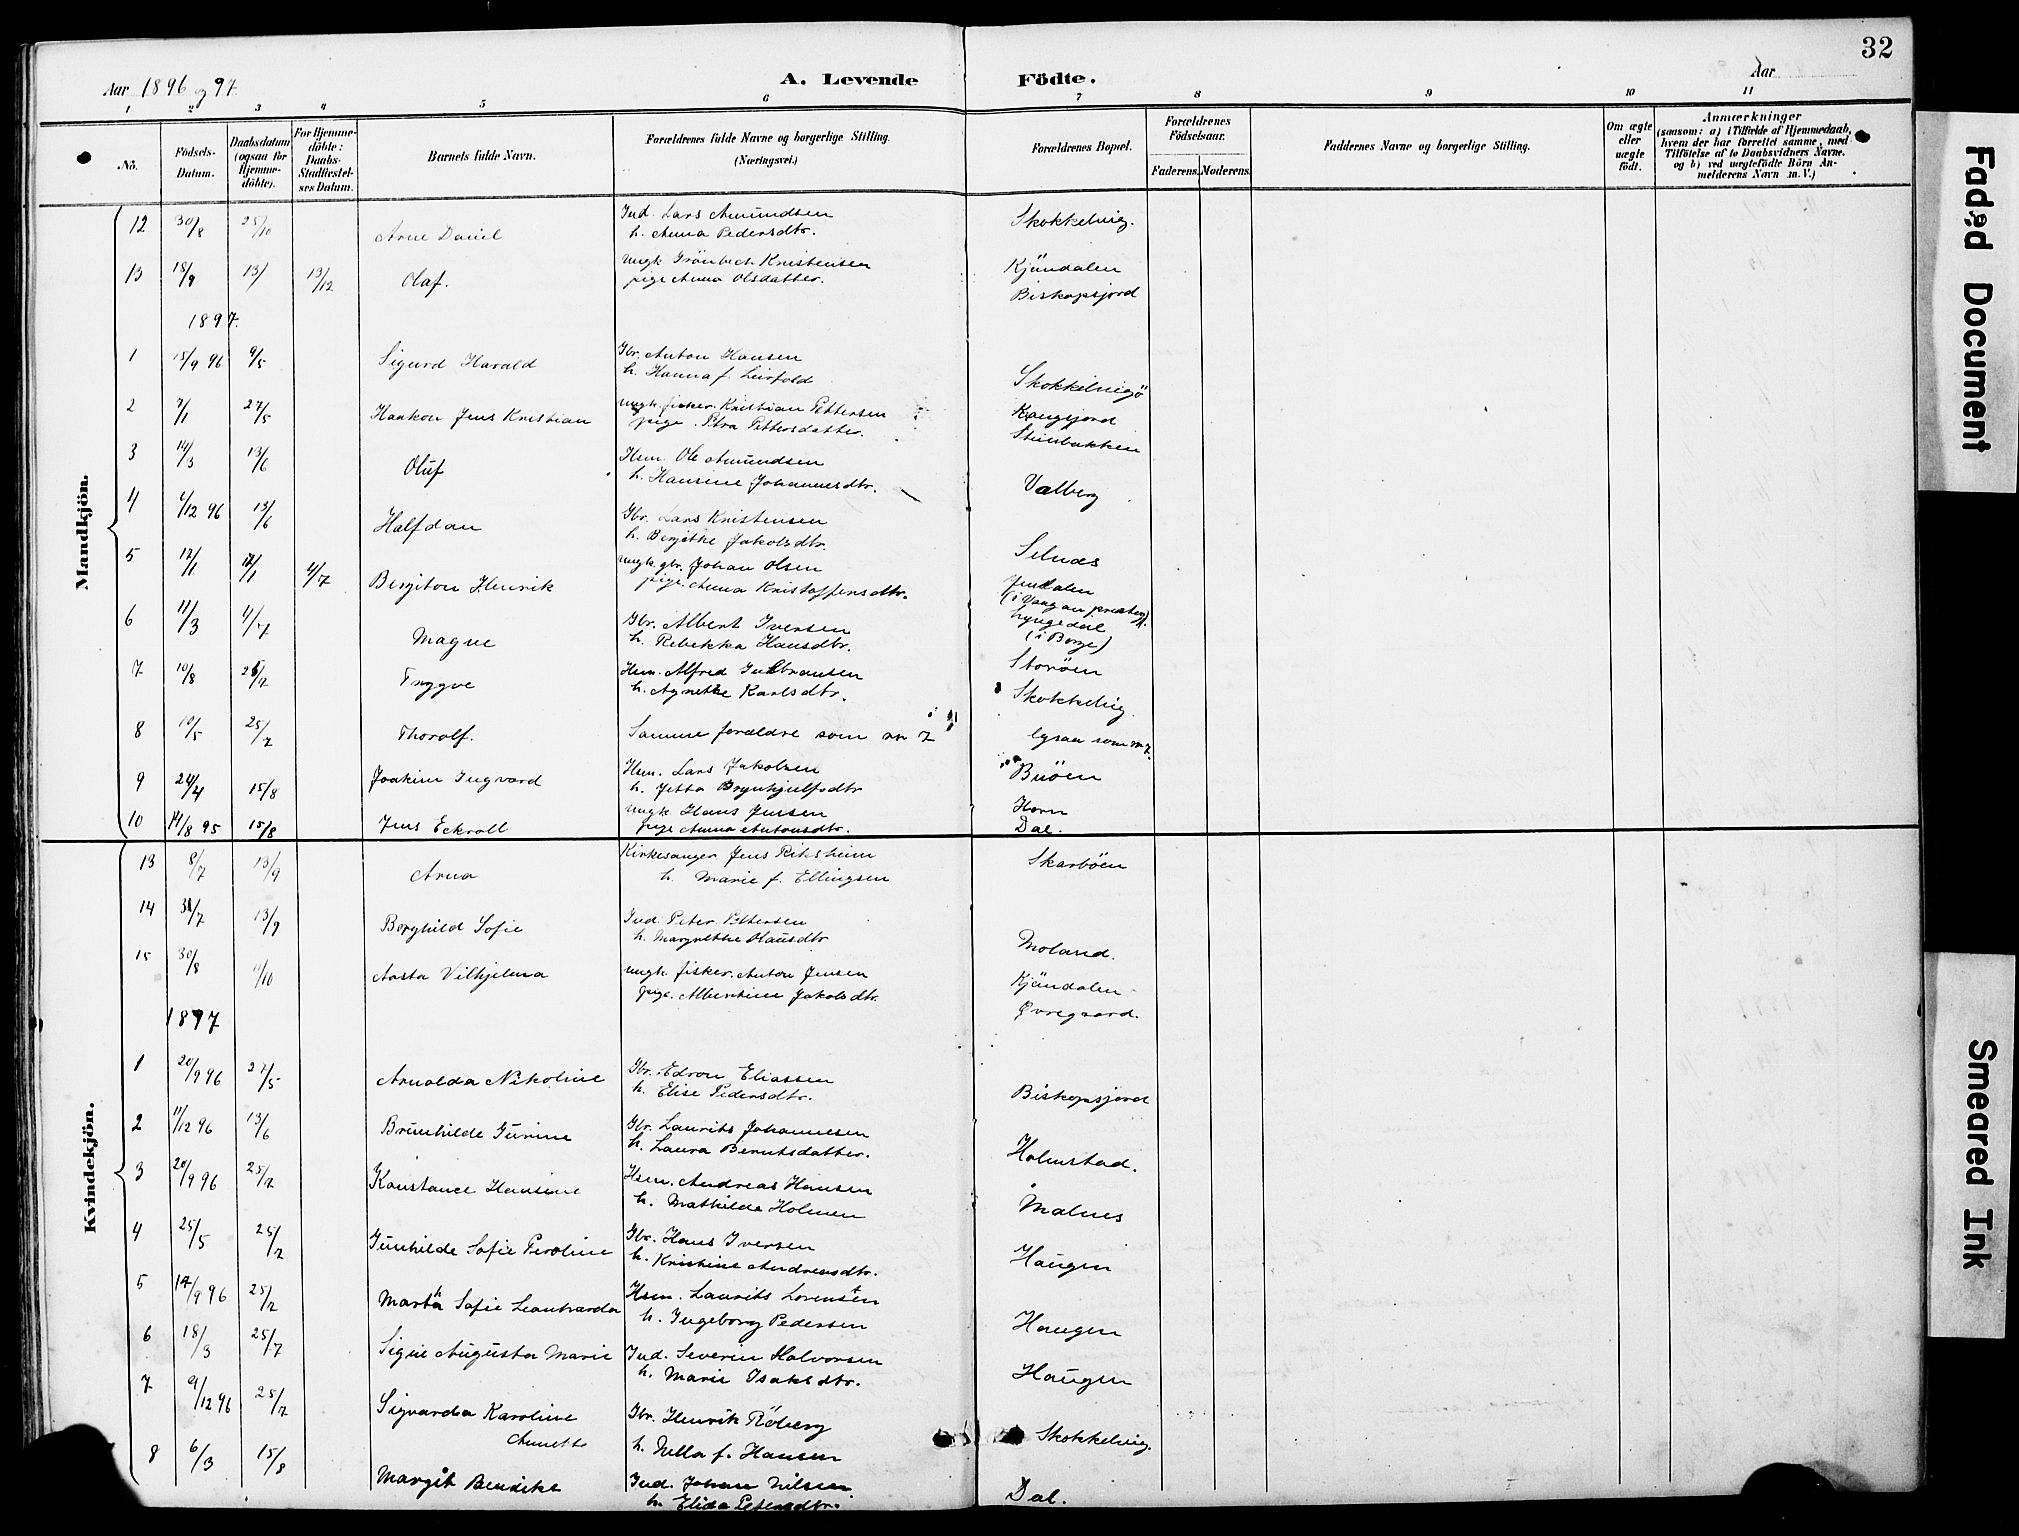 32
Aar 1896 og 97.
A. Levende Födte.
Aar
1 2 3 4 5 6 7 8 9 10 11
No.
Födsels-Datum.
Daabsdatum (ogsaa for Hjemme-döbte).
For Hjemme-döbte: Daabs-Stadfæstel-ses Datum.
Barnets fulde Navn.
Forældrenes fulde Navne og borgerlige Stilling. (Næringsvei.)
Forældrenes Bopæl.
Forældrenes Födselsaar.
Faderens. Moderens.
Faddernes Navne og borgerlige Stilling.
Om ægte eller uægte födt.
Anmærkninger
(saasom: a) i Tilfælde af Hjemmedaab, hvem der har forrettet samme, med Tilföielse af to Daabsvidners Navne, og b) ved uegtefödte Börn An-melderens Navn m. V.)
Mandkjön.
12 30/8 25/10 Arne Daniel Ind. Lars Amundsen Skokkelvig.
h. Anna Pedersdtr.
13 18/9 13/ 13/12 Olaf. ungk. Grönbech Kristensen Kjöndalen
pige Anna Olsdatter. Biskopsjord
1897.
1 15/9 96 9/5 Sigurd Harald Gbr. Anton Hansen
h. Hanna f. Leirfold Skokkelvigö
2 7/1 27/5 Haakon Jens Kristian ungk. fisker. Kristian Pettersen Kangsjord
pige. Petra Pettersdatter. Steinbakken
3 14/3 13/6 Oluf Hsm. Ole Amundsen
h. Hansine Johannesdtr. Valberg
4 /12 96 13/6 Halfdan Gbr. Lars Kristensen
h. Bergithe Jakobsdtr.
5 12/1 17/1 4/7 Bergiton Henrik ungk. gbr. Johan Olsen Selnæs
pige. Anna Kristoffersdtr. Jendalen
(i Vaagan præsteg).
6 11/3 4/7 Magne Gbr. Albert Iversen Lyngedal
h. Rebekka Hansdtr. (i Borge)
7 10/8 25/7 Trygve Hsm. Alfred Gulbransen Storöen
h. Agnethe Karlsdtr. Skokkelvig
8 10/5 25/7 Thorolf. Samme forældre som nr 7 ligsaa som nr 7.
9 24/4 15/8 Joakim Ingvard Hsm. Lars Jakobsen Buöen
h. Jetta Brynhjulfsdtr
10 14/8 95 15/8 Jens Eckroll ungk. Hans Jensen Horn
pige Anna Antonsdtr. Dal.
Kvindekjön.
13 8/7 13/9 Arna Kirkesanger Jens Riksheim Skarböen
h. Marie f. Ellingsen
14 31/7 13/9 Borghild Sofie Ind. Peter Pettersen
h. Margrethe Olausdtr Moland.
15 30/8 /10 Aasta Vilhjelma ungk. fisker. Anton Jensen Kjöndalen
pige. Albertine Jakobsdtr. Øvregaard.
1897
1 20/9 96 27/5 Arnolda Nikoline Gbr. Edvon Eliassen
h. Elise Pedersdtr. Biskopsjord
2 11/12 96 13/6 Brünhilde Gurine Gbr. Laurits Johannesen
h. Laura Berntsdatter. Holmstad.
3 20/9 96 25/7 Konstance Hansine Hsm. Andreas Hansen
h. Mathilde Holmen Malnes
4 25/5 25/7 Gunhilde Sofie Peroline Gbr. Hans Iversen
h. Kristine Andreasdtr. Haugen
5 14/9 96 25/7 Martha Sofie Leonharda Hsm. Laurits Lorensten
h. Ingeborg Pedersen Haugen
6 18/3 25/7 Signe Augusta Marie Ind. Severin Halvorsen
h. Marie Isaksdtr. Haugen
7 9/12 96 25/7 Sigvarda Karoline Gbr. Henrik Röberg
Annette h. Nella f. Hansen Skokkelvig.
8 6/3 15/8 Margit Bendikte Ind. Johan Nilsen
h. Elida Petersdtr. Dal.
Faded Document
Smeared Ink